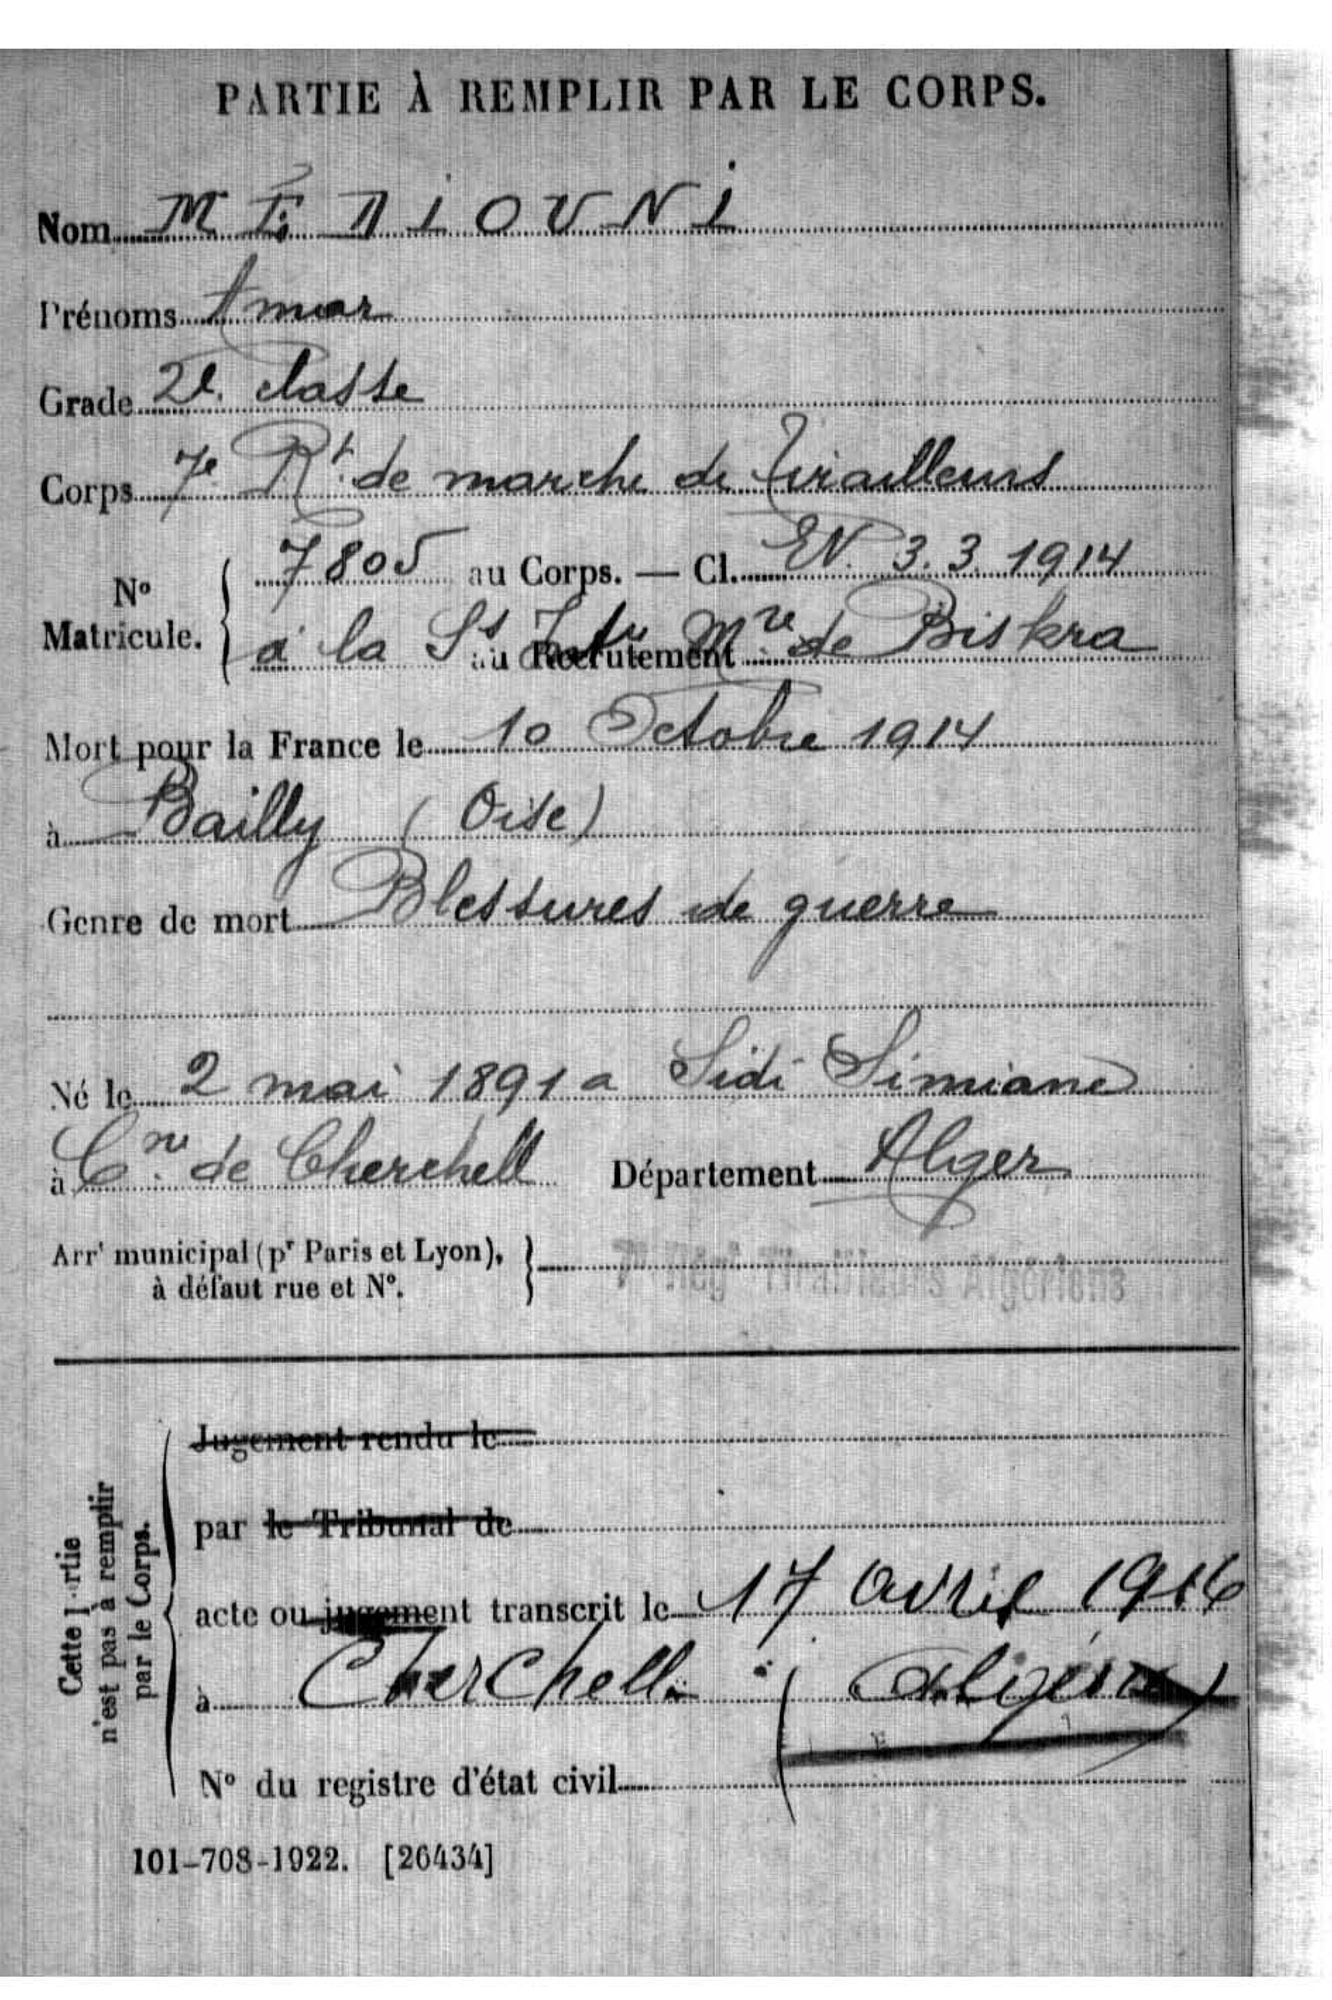 PARTIE À REMPLIR PAR LE CORPS.
Nom MÉDIOUNI
Prénoms Amar
Grade 2e. classe
Corps 7e Rt. de marche de Tirailleurs
No Matricule. { 7805 au Corps. — Cl. EV. 3.3.1914
à la Ss Intce Mre de Biskra au Recrutement
Mort pour la France le 10 Octobre 1914
à Bailly (Oise)
Genre de mort Blessures de guerre
Né le 2 mai 1891 a Sidi Simiane
à Cne. de Cherchell Département Alger
Arrt municipal (pr Paris et Lyon), }
à défaut rue et No.
7e Régt Tirailleurs Algériens
Cette Partie n'est pas à remplir par le Corps.
Jugement rendu le
par le Tribunal de
acte ou jugement transcrit le 17 avril 1916
à Cherchell (Algérie)
No du registre d'état civil
101-708-1922. [26434]